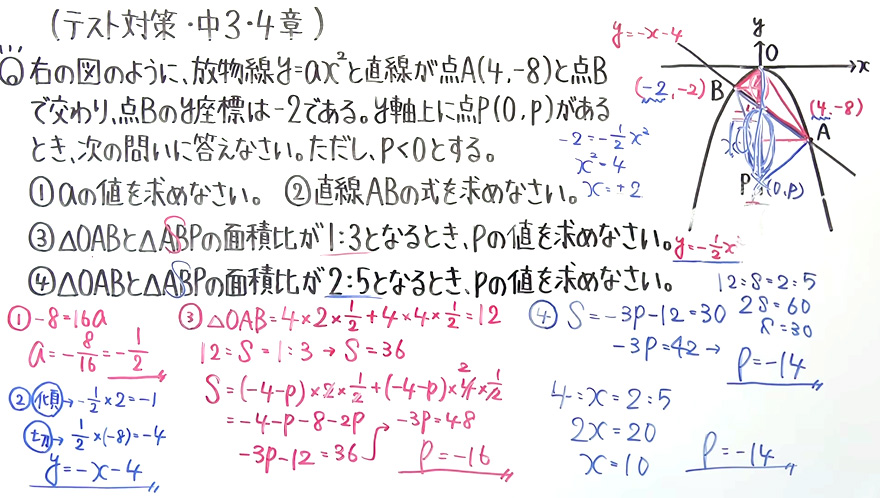 (テスト対策・中3・4章)
⑥右の図のように、放物線y=ax²と直線が点A(4,-8)と点B
で交わり、点Bのy座標は-2である。y軸上に点P(0,p)がある
とき、次の問いに答えなさい。ただし、P<0とする。
①aの値を求めなさい。 ②直線ABの式を求めなさい。
③△OABと△ABPの面積比が1:3となるとき、Pの値を求めなさい。
④△OABと△ABPの面積比が2:5となるとき、Pの値を求めなさい。
y=-x-4
y
O
x
(-2,-2)
B
(4,-8)
A
P
(0,P)
y=-1/2x²
-2=-1/2x²
x²=4
x=±2
①-8=16a
a=-8/16=-1/2
②
→-1/2×2=-1
→1/2×(-8)=-4
y=-x-4
③△OAB=4×2×1/2+4×4×1/2=12
12:S=1:3→S=36
S=(-4-p)×2×1/2+(-4-p)×4×1/2
2
=-4-p-8-2p
-3p-12=36
-3p=48
p=-16
12:S=2:5
2S=60
S=30
④S=-3p-12=30
-3p=42→
p=-14
4:x=2:5
2x=20
x=10
p=-14